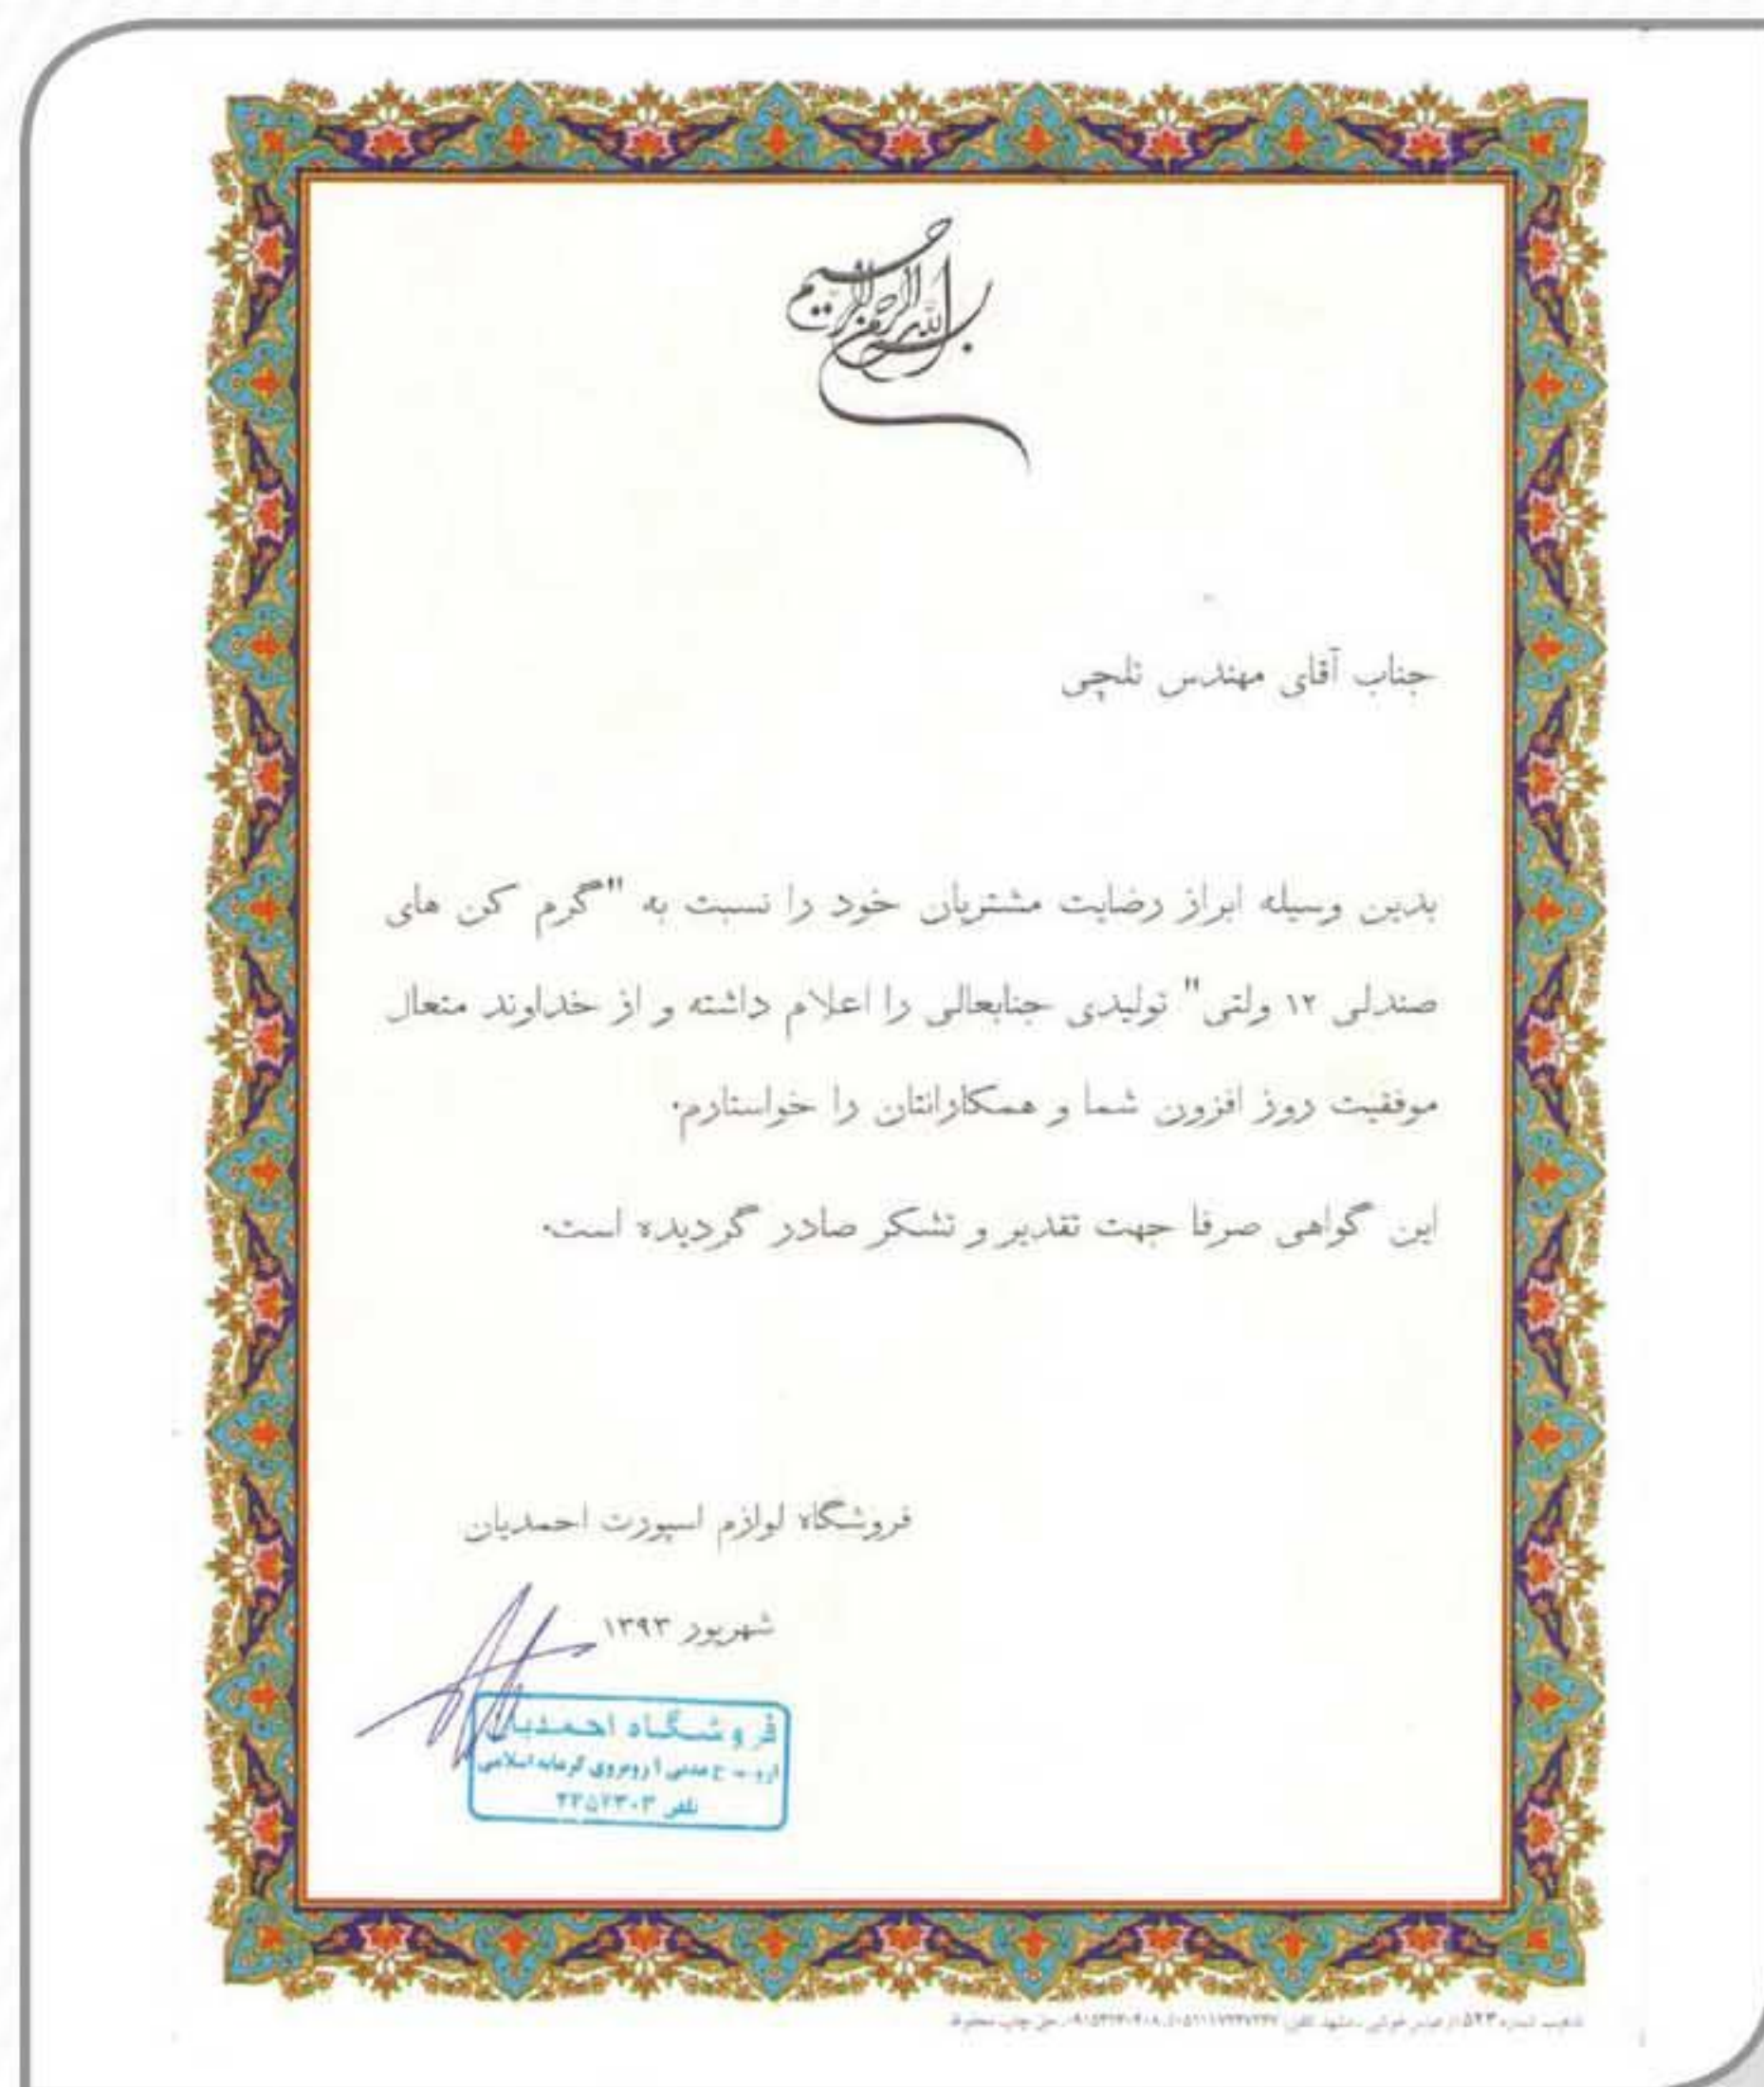 بسم الله الرحمن الرحیم
جناب آقای مهندس تلچی
بدین وسیله ابراز رضایت مشتریان خود را نسبت به "گرم کن های
صندلی ۱۲ ولتی" تولیدی جنابعالی را اعلام داشته و از خداوند متعال
موفقیت روز افزون شما و همکارانتان را خواستارم.
این گواهی صرفا جهت تقدیر و تشکر صادر گردیده است.
فروشگاه لوازم اسپورت احمدیان
شهریور ۱۳۹۳
فروشگاه احمدیان
مدنی ۱ روبروی گرمابه اسلامی
تلفن
تذهیب شماره ۵۲۳ مشهد تلفن حق چاپ محفوظ